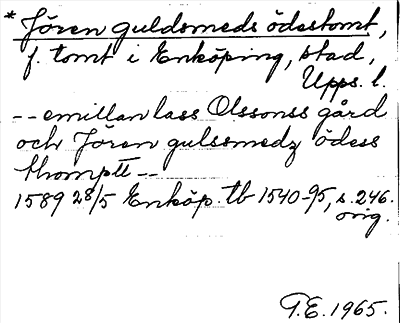 * Jören guldsmeds ödestomt,
f. tomt i Enköping, stad,
Upps. l.
-- emillan lass Olssonss gård
och Jören gulssmedz ödess
thomptt --
1589 28/5 Enköp. tb 1540-95, s. 246.
orig.
G.E. 1965.